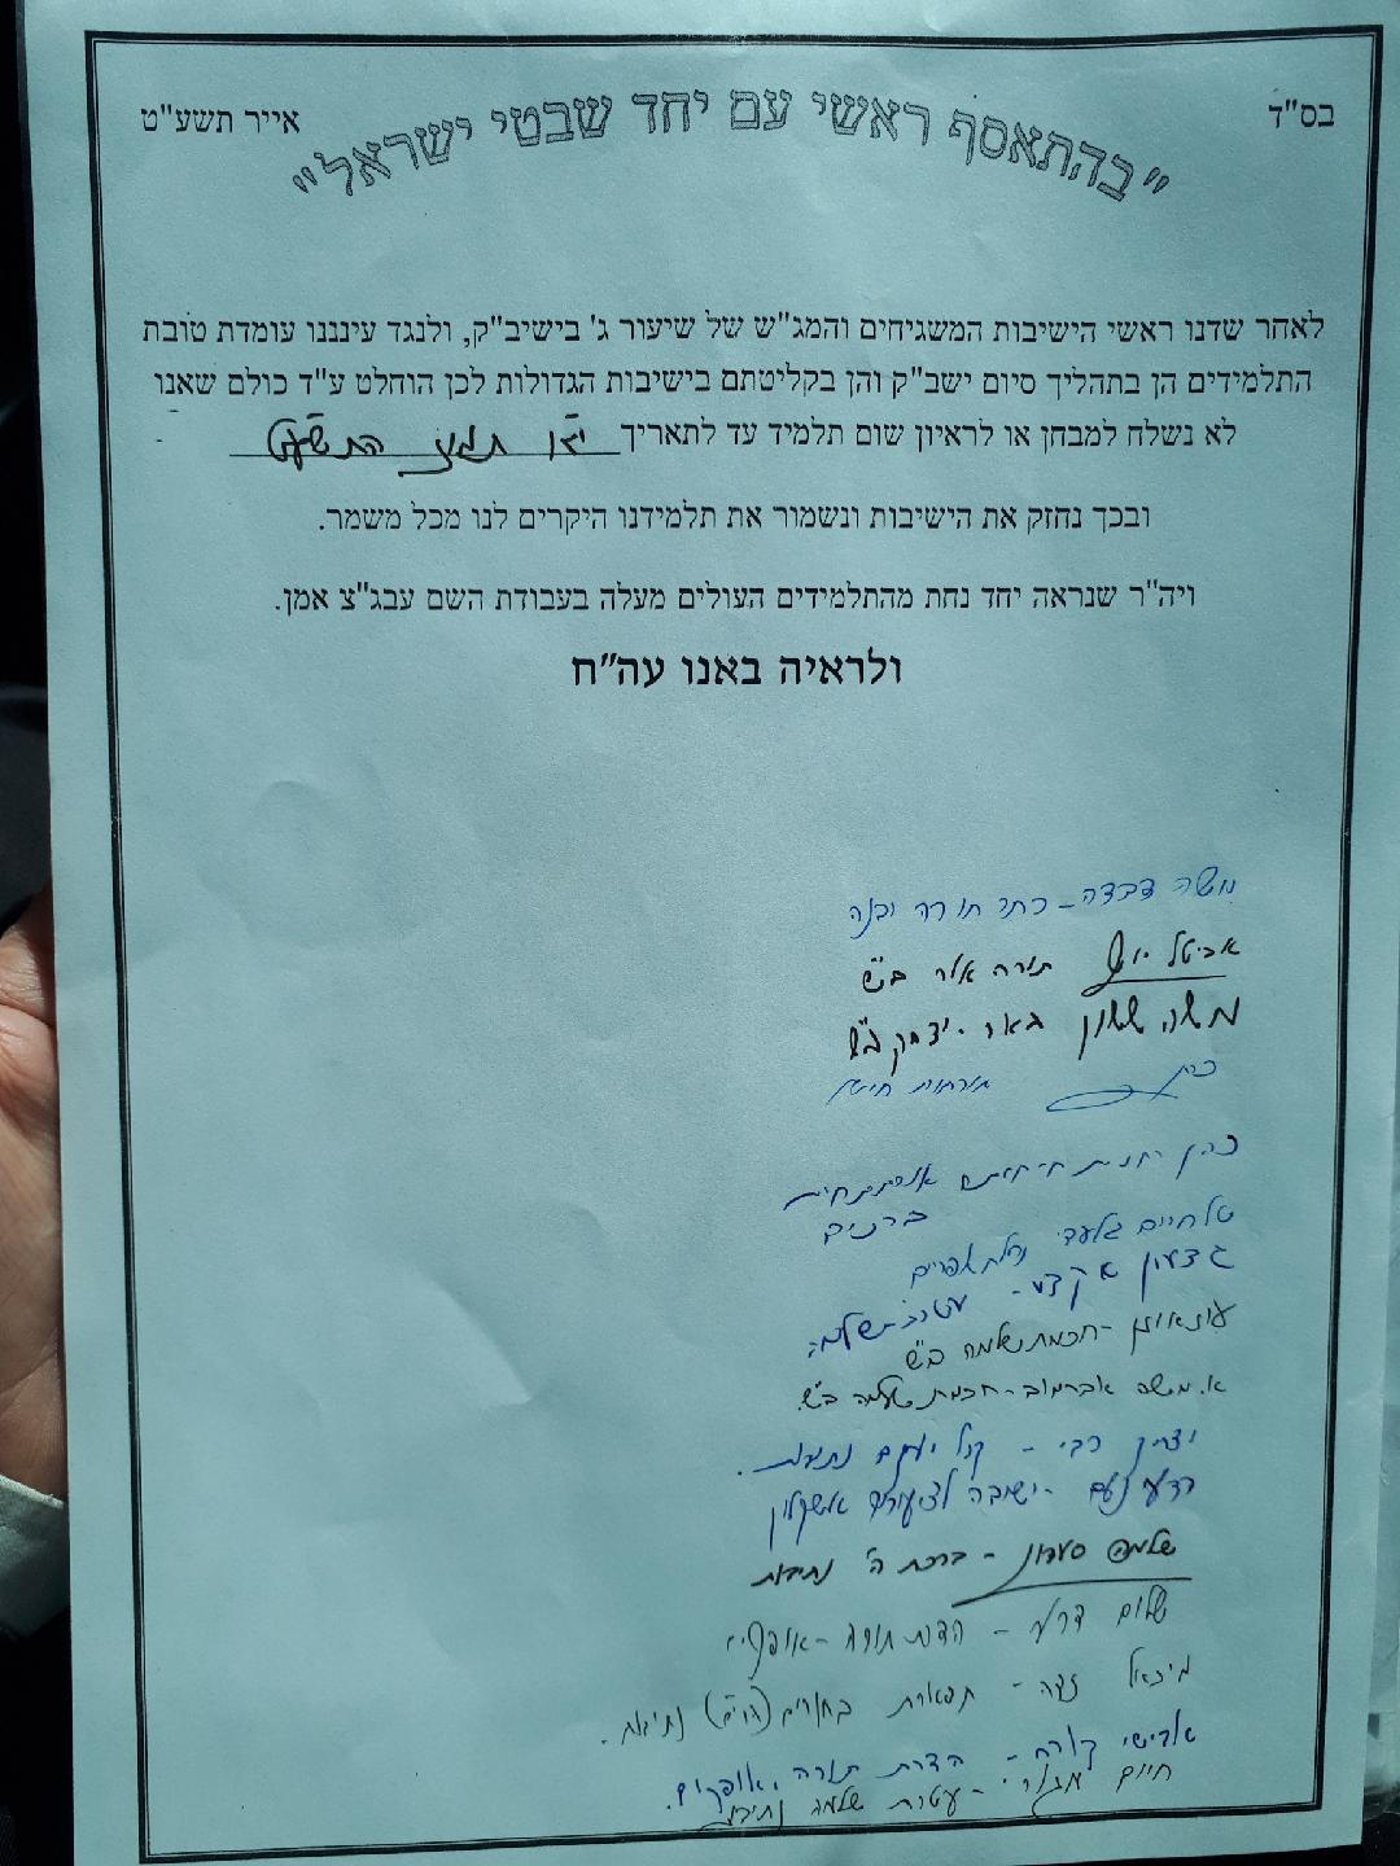 בס"ד
אייר תשע"ט
"בהתאסף ראשי עם יחד שבטי ישראל"
לאחר שדנו ראשי הישיבות המשגיחים והמג"ש של שיעור ג' בישיב"ק, ולנגד עינננו עומדת טובת
התלמידים הן בתהליך סיום ישב"ק והן בקליטתם בישיבות הגדולות לכן הוחלט ע"ד כולם שאנו
לא נשלח למבחן או לראיון שום תלמיד עד לתאריך תמוז התשע"ט
ובכך נחזק את הישיבות ונשמור את תלמידנו היקרים לנו מכל משמר.
ויה"ר שנראה יחד נחת מהתלמידים העולים מעלה בעבודת השם עבג"צ אמן.
ולראיה באנו עה"ח
משה דבדה - כתר תורה יבנה
אביטל תורה אור ב"ש
משה ששון באר יצחק ב"ש
כהן
כהן
ברנים
טל חיים גלעדי נחלת אפרים
גדעון אקצי - עטרת שלמה
חכמת שלמה ב"ש
א. משה אברמוב - חכמת שלמה ב"ש.
יצחק רבי - קול יעקב נתיבות.
נועם - ישיבה לצעירים אשקלון
שלמה סערון - ברכת ה' נתיבות
שלום דרעי - הדרת תורה - אופקים
מיכאל - תפארת בחורים נתיבות.
אבישי קורח - הדרת תורה, אופקים.
חיים מגורי - עטרת שלמה נתיבות